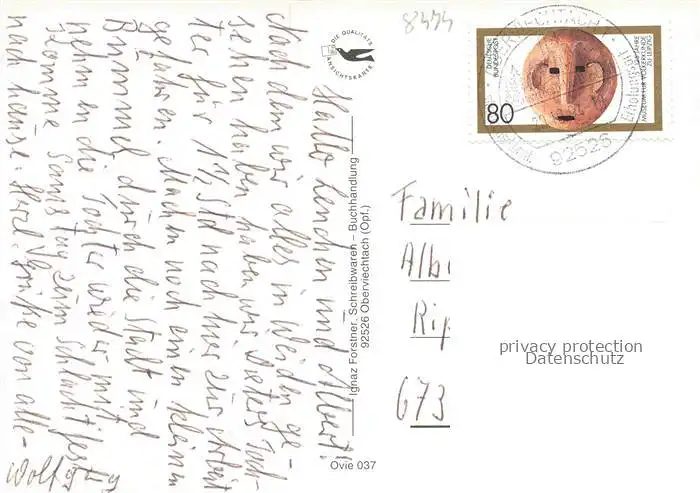 Hallo Lenchen und Albert!
Nach dem wir alles in Weiden ge-
sehen haben haben wir Dieters Toch-
ter für 1½ Std nach hier zur Arbeit
gefahren. Machen noch einen kleinen
Bummel durch die Stadt und
nehmen die Tochter wieder mit
Komme Samstag zum Schlachtfest
nach hause. Herzl. Grüße von alle-
Wolfgang
DIE QUALITÄTS
ANSICHTSKARTE
Ignaz Forstner, Schreibwaren – Buchhandlung
92526 Oberviechtach (Opf.)
Ovie 037
8474
DEUTSCHE
BUNDESPOST
80
MUSEUM FÜR VÖLKERKUNDE
ZU LEIPZIG
OBERVIECHTACH
92526
Familie
Alb
Rip
673
privacy protection
Datenschutz